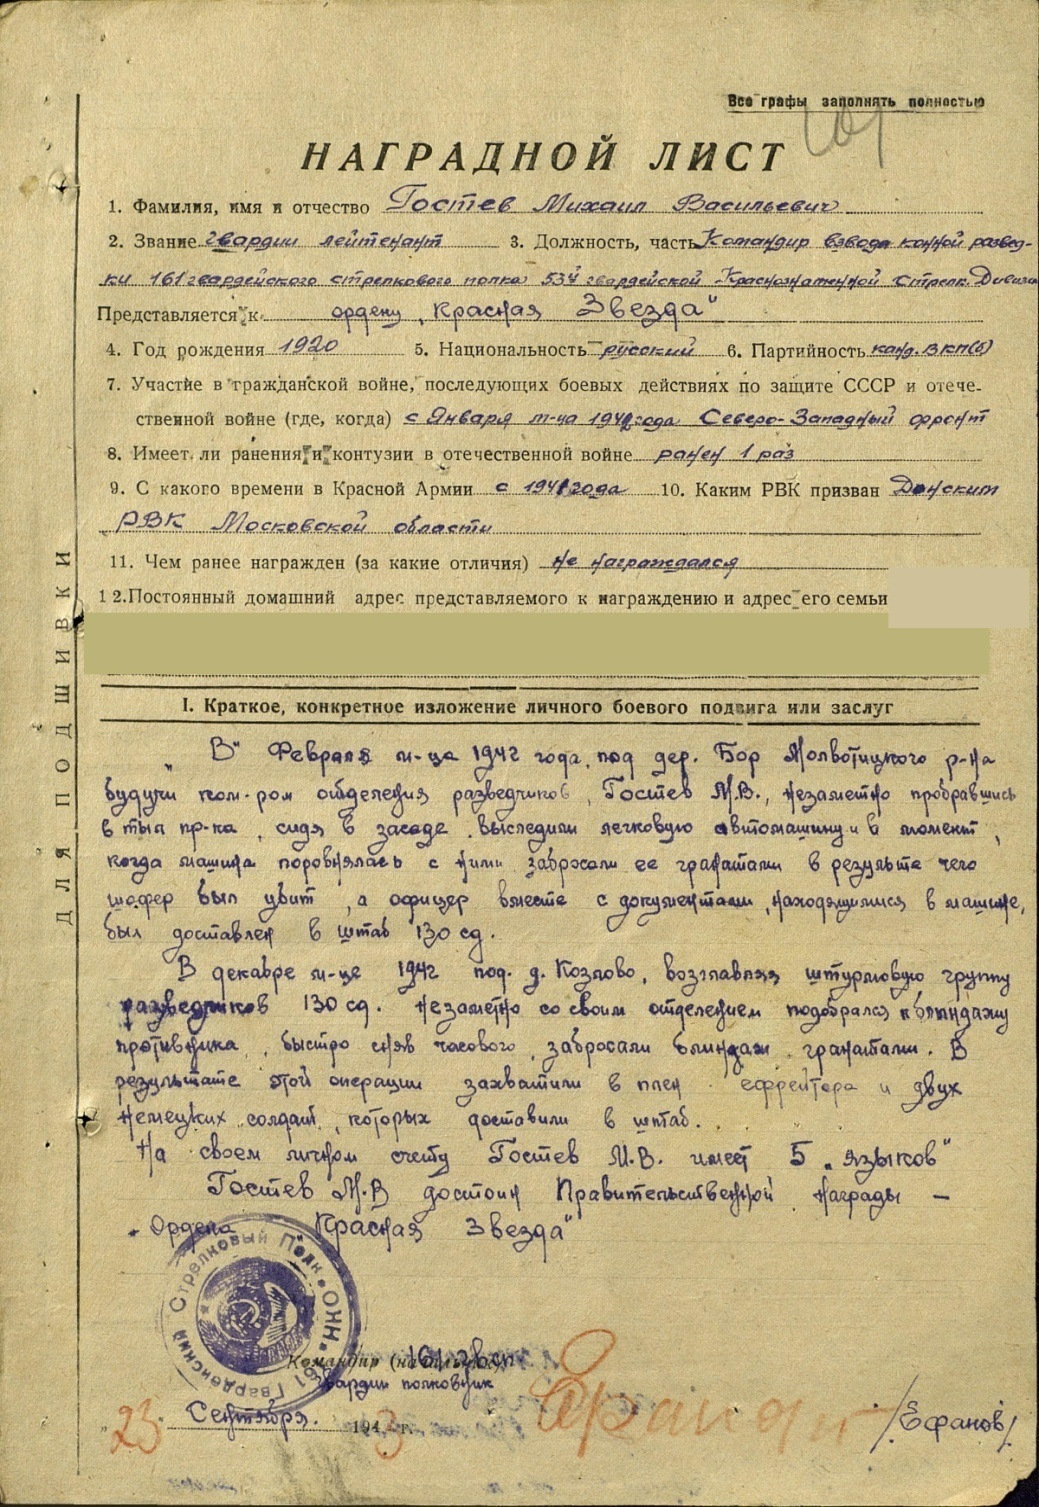 Все графы заполнять полностью
101
НАГРАДНОЙ ЛИСТ
1. Фамилия, имя и отчество Гостев Михаил Васильевич
2. Звание гвардии лейтенант 3. Должность, часть Командир взвода конной развед-
ки 161 гвардейского стрелкового полка 53й гвардейской Краснознаменной Стрелк. Дивизи
Представляется к ордену „Красная Звезда"
4. Год рождения 1920 5. Национальность русский 6. Партийность канд. ВКП(б)
7. Участие в гражданской войне, последующих боевых действиях по защите СССР и отече-
ственной войне (где, когда) с Января м-ца 1942 года Северо-Западный фронт
8. Имеет ли ранения и контузии в отечественной войне ранен 1 раз
9. С какого времени в Красной Армии с 1941 года 10. Каким РВК призван Донским
РВК Московской области
11. Чем ранее награжден (за какие отличия) не награждался
12. Постоянный домашний адрес представляемого к награждению и адрес его семьи
ДЛЯ ПОДШИВКИ
I. Краткое, конкретное изложение личного боевого подвига или заслуг
В" Февраля м-ца 1942 года, под дер. Бор Молвотицкого р-на
будучи ком-ром отделения разведчиков, Гостев М.В., незаметно пробравшись
в тыл пр-ка, сидя в засаде выследили легковую автомашину и в момент,
когда машина поровнялась с ними забросали ее гранатами в результе чего
шофер был убит, а офицер вместе с документами, находящимися в машине,
был доставлен в штаб 130 сд.
В декабре м-це 1942 под. д. Козлово, возглавляя штурмовую группу
разведчиков 130 сд. незаметно со своим отделением подобрался к блиндажу
противника, быстро сняв часового, забросали блиндаж гранатами. В
результате этой операции захватили в плен ефрейтора и двух
немецких солдат, которых доставили в штаб.
На своем личном счету Гостев М.В. имеет 5 „языков"
Гостев М.В достоин Правительственной награды —
Ордена Красная Звезда"
Стрелковый Полк ОНН 161 Гвардейский
Командир 161 гвсп
гвардии полковник
23 Сентября 1943 г.
/Ефанов/